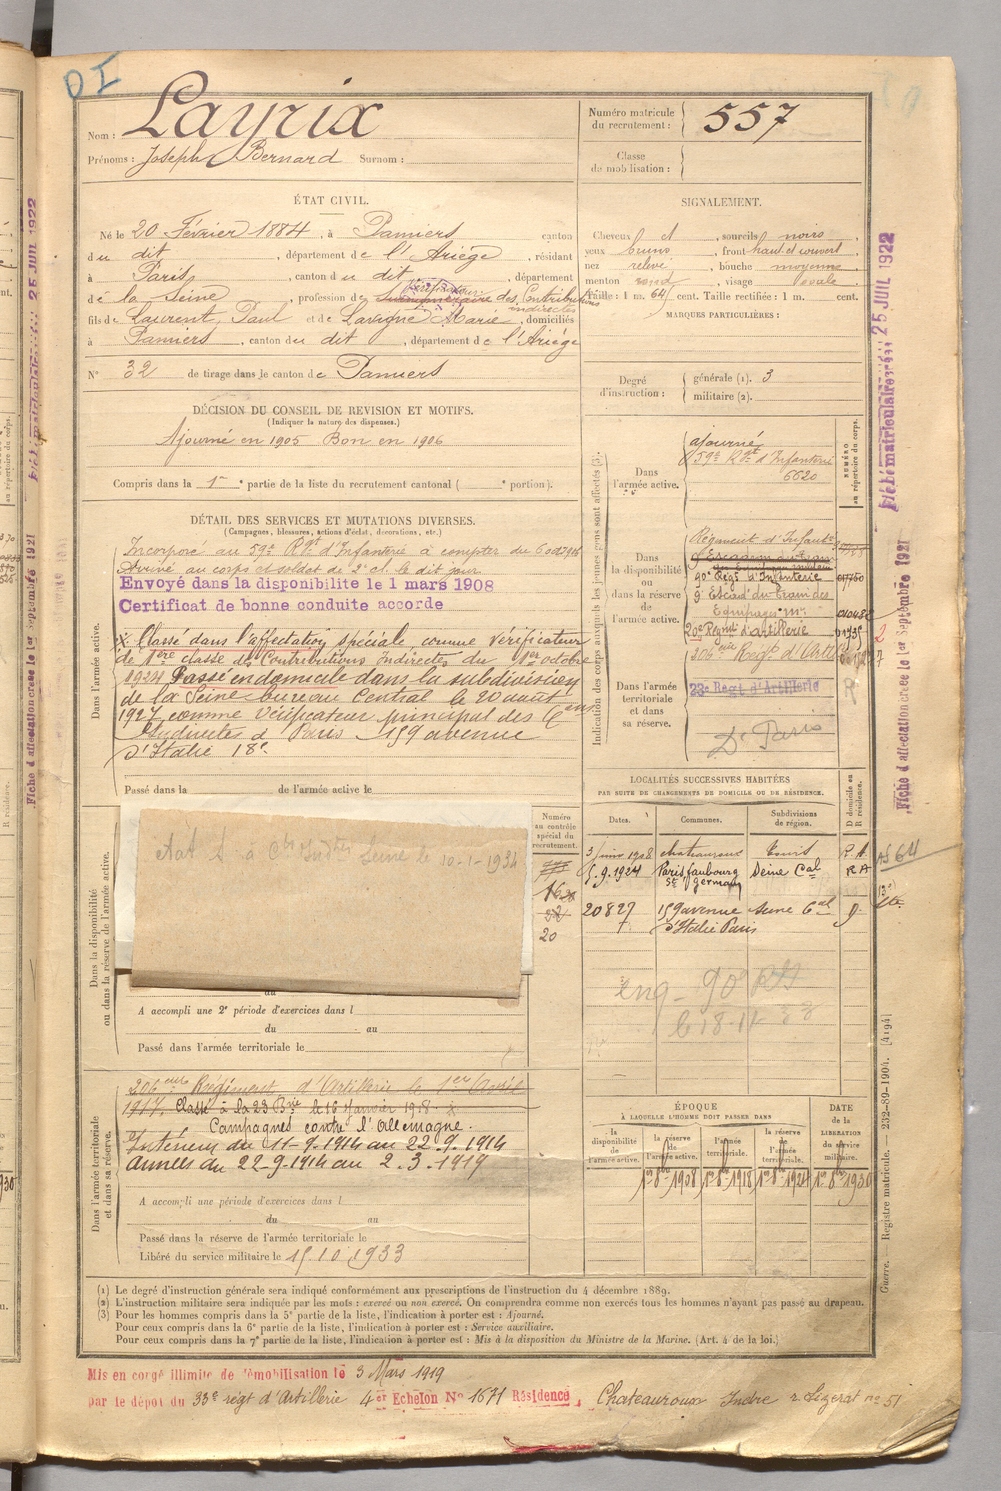 DI
Nom : Layrix
Prénoms : Joseph Bernard Surnom :
Numéro matricule du recrutement : 557
Classe de mobilisation :
ÉTAT CIVIL.
Né le 20 Février 1884, à Pamiers canton
du dit, département de l'Ariège, résidant
à Paris, canton du dit, département
de la Seine, profession de Surnuméraire des Contributions indirectes
fils de Laurent, Paul et de Lavigne Marie, domiciliés
à Pamiers, canton du dit, département de l'Ariège
N° 32 de tirage dans le canton de Pamiers
SIGNALEMENT.
Cheveux et, sourcils noirs,
yeux bruns, front haut et ouvert
nez relevé, bouche moyenne
menton rond, visage ovale
Taille : 1 m. 64 cent. Taille rectifiée : 1 m. cent.
MARQUES PARTICULIÈRES :
Degré d'instruction : générale (1). 3
militaire (2).
DÉCISION DU CONSEIL DE REVISION ET MOTIFS.
(Indiquer la nature des dispenses.)
Ajourné en 1905 Bon en 1906
Compris dans la 1re partie de la liste du recrutement cantonal ( e portion).
DÉTAIL DES SERVICES ET MUTATIONS DIVERSES.
(Campagnes, blessures, actions d'éclat, décorations, etc.)
Incorporé au 59e Rgt d'Infanterie à compter du 6 oct 1906
Arrivé au corps et soldat de 2e cl. le dit jour
Envoyé dans la disponibilite le 1 mars 1908
Certificat de bonne conduite accorde
Classé dans l'affectation spéciale comme Vérificateur
de 1ere classe des Contributions Indirectes du 1er octobre
1924 Passé en domicile dans la subdivision
de la Seine bureau Central le 20 août
1927 comme Vérificateur Principal des Cons
Indirectes à Paris 159 avenue
d'Italie 18e
Dans l'armée active.
Passé dans la de l'armée active le
Indication des corps auxquels les jeunes gens sont affectés (3).
NUMÉRO au répertoire du corps.
Dans l'armée active.
ajourné
59e Rgt d'Infanterie
6620
Dans la disponibilité ou dans la réserve de l'armée active.
Régiment d'Infant
90e Régt d'Infanterie
9e Escad du Train des
Equipages m.
20e Regmt d'artillerie
206eme Regt d'Artie
Dans l'armée territoriale et dans sa réserve.
23e Regt d'Artillerie
De Paris
LOCALITÉS SUCCESSIVES HABITÉES
PAR SUITE DE CHANGEMENTS DE DOMICILE OU DE RÉSIDENCE.
Numéro au contrôle spécial du recrutement.
Dates. Communes. Subdivisions de région.
D domicile ou R résidence.
3 juin 1908 chateauroux Tours R.A.
5.9.1924 Paris faubourg St Germain Seine Cal RA
20 8 27 159 avenue d'Italie Paris Seine Cal D.
20
AS 64
Dans la disponibilité ou dans la réserve de l'armée active.
Seine le 10-1-1934
eng - 90e RI
le 18-11-
A accompli une 2e période d'exercices dans l
du au
Passé dans l'armée territoriale le
Dans l'armée territoriale et dans sa réserve.
206eme Régiment d'Artillerie le 1er Avril
1917. Classé à la 23 Bie le 16 Janvier 1918
Campagnes contre l'allemagne.
Intérieur du 11-9-1914 au 22-9-1914
Armées du 22-9-1914 au 2-3-1919
A accompli une période d'exercices dans l
du au
Passé dans la réserve de l'armée territoriale le
Libéré du service militaire le 15 10 1933
ÉPOQUE
À LAQUELLE L'HOMME DOIT PASSER DANS
la disponibilité de l'armée active.
la réserve de l'armée active.
l'armée territoriale.
la réserve de l'armée territoriale.
DATE de la LIBÉRATION du service militaire.
1er 8bre 1908 1er 8bre 1918 1er 8bre 1924 1er 8bre 1930
(1) Le degré d'instruction générale sera indiqué conformément aux prescriptions de l'instruction du 4 décembre 1889.
(2) L'instruction militaire sera indiquée par les mots : exercé ou non exercé. On comprendra comme non exercés tous les hommes n'ayant pas passé au drapeau.
(3) Pour les hommes compris dans la 5e partie de la liste, l'indication à porter est : Ajourné.
Pour ceux compris dans la 6e partie de la liste, l'indication à porter est : Service auxiliaire.
Pour ceux compris dans la 7e partie de la liste, l'indication à porter est : Mis à la disposition du Ministre de la Marine. (Art. 4 de la loi.)
Mis en congé illimité de démobilisation le 3 Mars 1919
par le dépot du 33e régt d'Artillerie 4er Echelon N° 1671 Résidence, Chateauroux Indre r. Lizerat no 51
Guerre. — Registre matricule. — 232-89-1904. [4194]
Fiche matriculaire créée 25 JUIL 1922
Fiche d'affectation créée le 1er Septembre 1921
25 JUIL 1922
Fiche d'affectation créée le 1er Septembre 1921